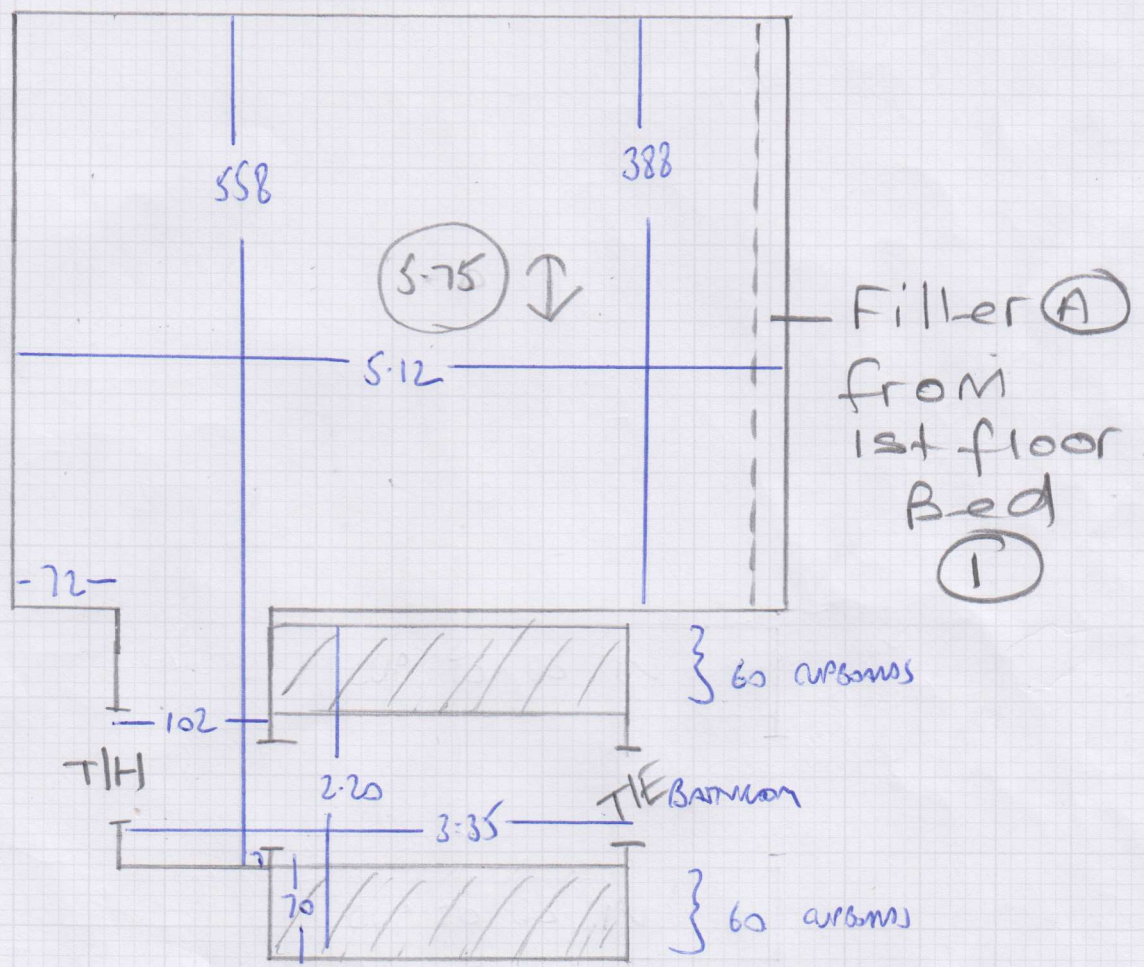 558
388
5.75
5.12
Filler A
from
1st floor
Bed
1
-72-
60 CUPBOARDS
102
T/H
2.20
T/E BATHROOM
3.35
70
60 CUPBOARDS